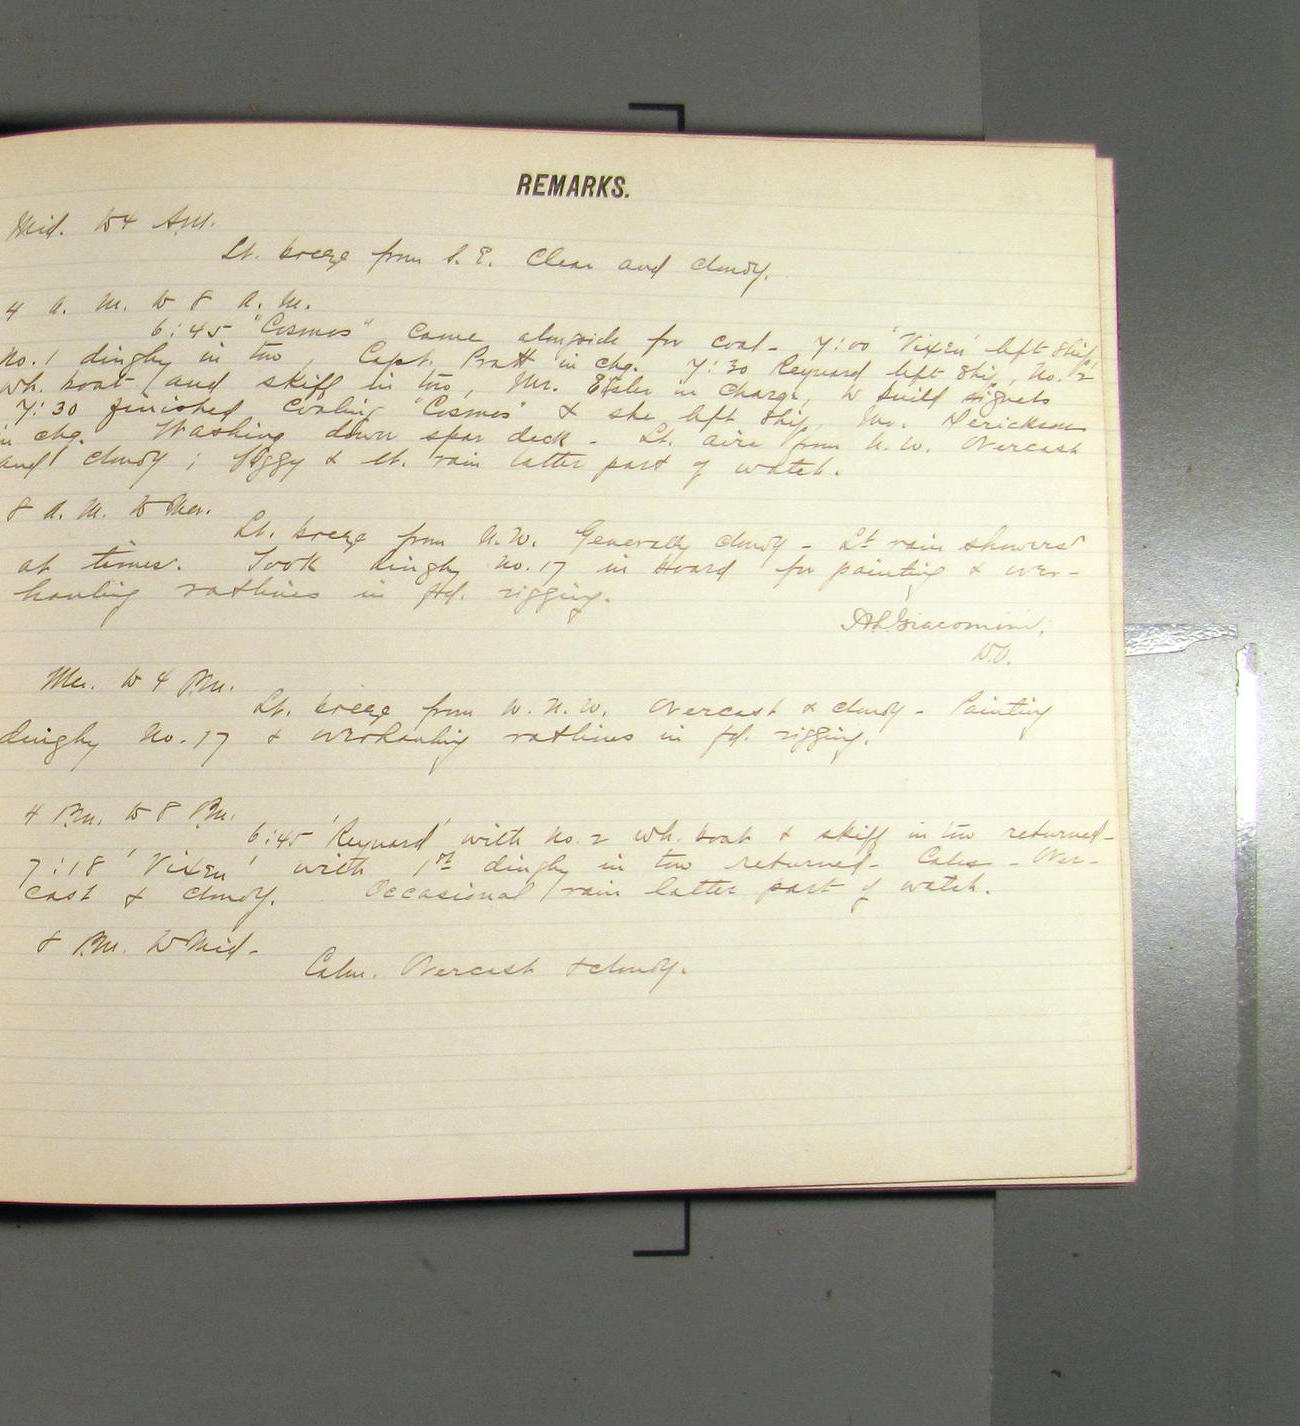 REMARKS.
Mid. to 4 A.M.
Lt. breeze from S.E. Clear and cloudy.
4 A. M. to 8 A. M.
6:45 "Cosmos" came alongside for coal - 7:00 'Vixen' left ship,
No. 1 dinghy in tow, Capt. Pratt in chg. 7:30 Reynard left ship, No. 2
wh. boat and skiff in tow, Mr. in charge, to build signals
7:30 finished coaling "Cosmos" & she left ship, Mr. Derickson
in chg. Washing down spar deck - Lt. airs from N.W. Overcast
and cloudy; foggy & lt. rain latter part of watch.
8 A. M. to Mer.
Lt. breeze from N.W. Generally cloudy - Lt rain showers
at times. Took dinghy No. 17 in board for painting & over-
hauling ratlines in fd. rigging.
Giacomini,
W.O.
Mer. to 4 P.M.
Lt. breeze from W.N.W. Overcast & cloudy - Painting
dinghy No. 17 & overhauling ratlines in fd. rigging.
4 P.M. to 8 P.M.
6:45 'Reynard' with No. 2 wh. boat & skiff in tow returned -
7:18 'Vixen' with 1st dinghy in tow returned - Calm - Over-
cast & cloudy. Occasional rain latter part of watch.
8 P.M. to Mid -
Calm. Overcast & cloudy.